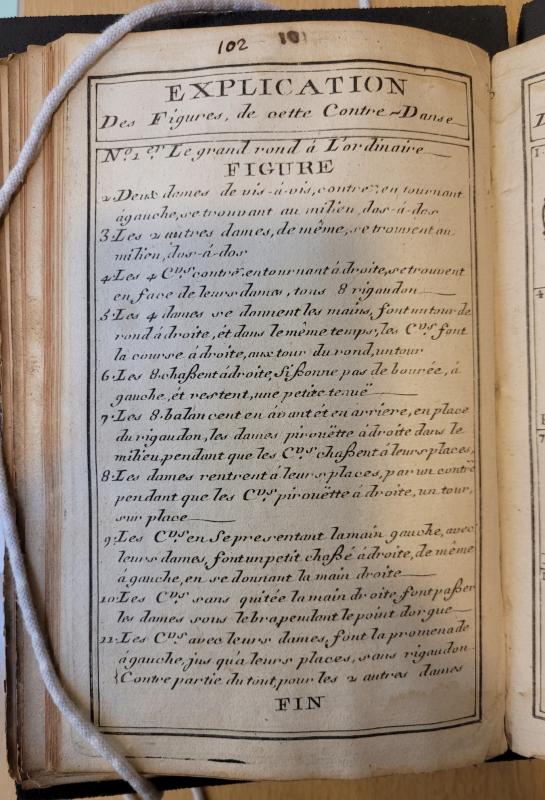 102 101
EXPLICATION
Des Figures, de cette Contre~Danse
No. 1.er Le grand rond á L'ordinaire
FIGURE
2. Deux dames de vis-á-vis, contre.t, en tournant
ágauche, se trouvant au milieu, dos-á-dos
3. Les 2 autres dames, de même, se trouvent au
milieu, dos-á-dos
4. Les 4 C.vrs contre.t, entournant ádroite, se trouvent
en face de leurs dames, tous 8 rigaudon
5. Les 4 dames se donnent les mains, font un tour de
rond ádroite, ét dans le même temps, les C.vrs font
la course ádroite, aux tour du rond, un tour
6. Les 8 chaßent ádroite, Sißonne pas de bourée, á
gauche, ét restent, une petite tenuë
7. Les 8. balancent en ávant ét en árriere, en place
du rigaudon, les dames pirouëtte ádroite dans le
milieu, pendant que les C.vrs chaßent áleurs places,
8. Les dames rentrent áleurs places, par un contré
pendant que les C.vrs pirouëtte ádroite, un tour,
sur place
9. Les C.vrs en Se presentant lamain gauche, avec
leurs dames, font un petit chaßé ádroite, de même
ágauche, en se donnant la main droite
10. Les C.vrs sans quitée la main droite, font paßer
les dames sous le bra pendant le point dorgue
11. Les C.vrs avec leurs dames, font la promenade
ágauche, jus qu'a leurs places, sans rigaudon
{Contre partie du tout pour les 2 autres dames
FIN